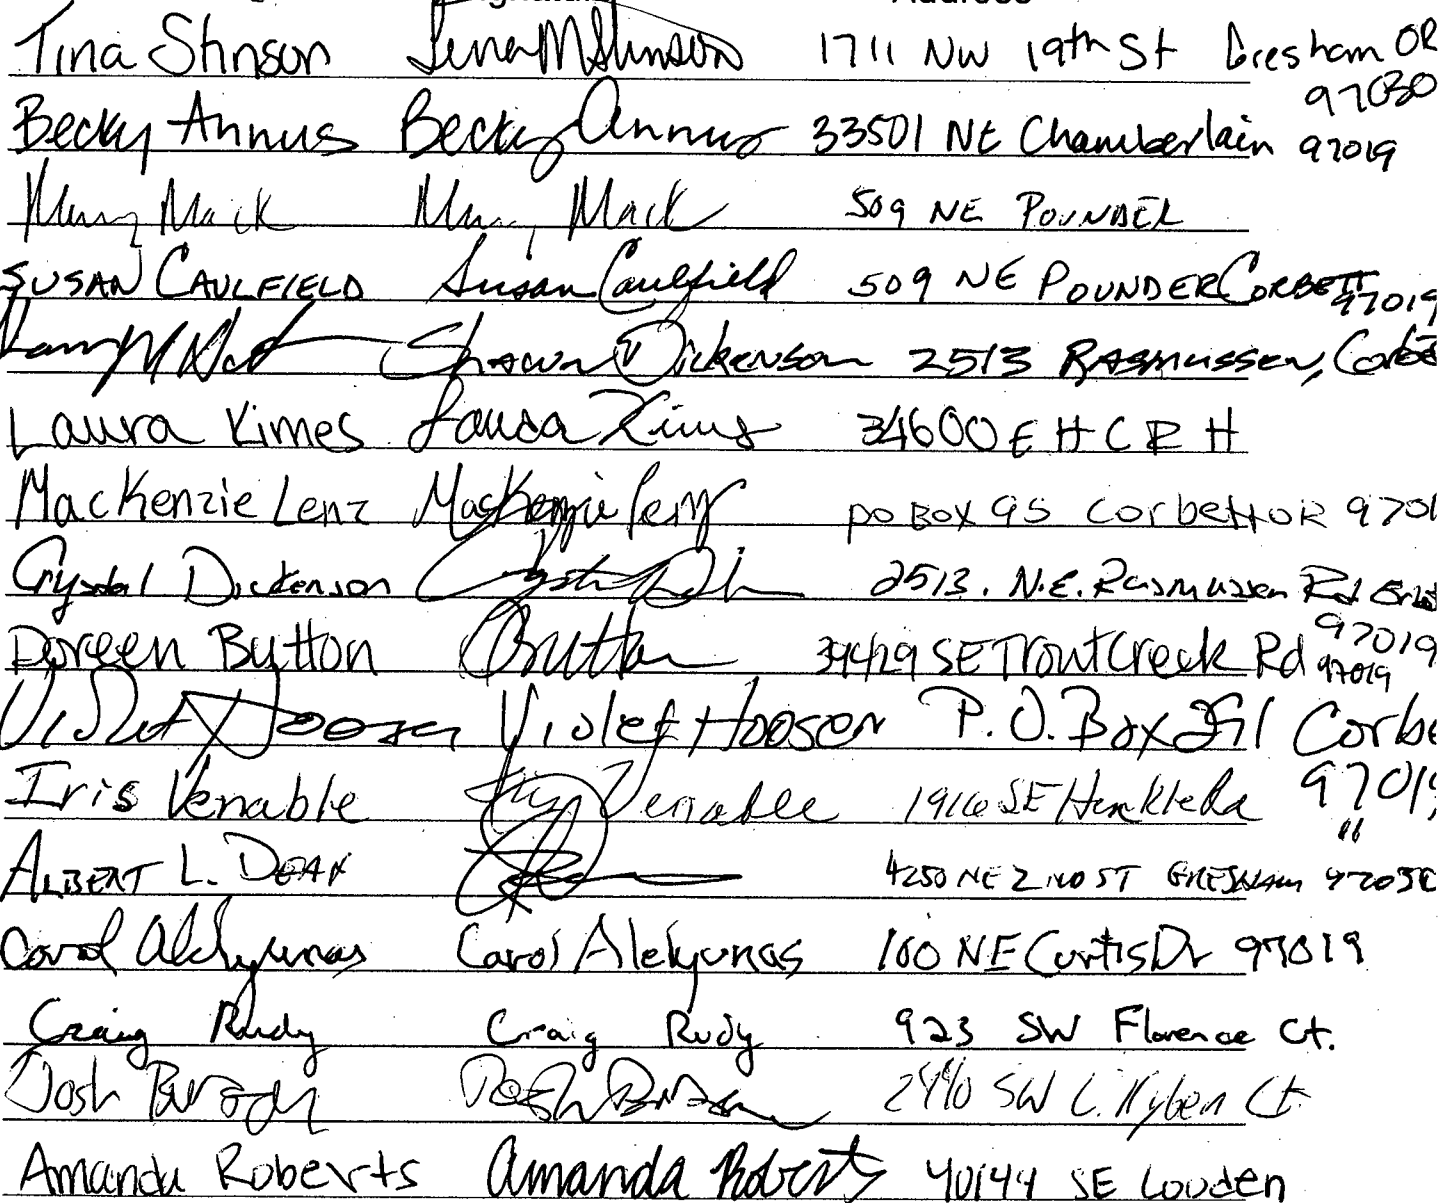 Address
Tina Stinson Tina M Stinson 1711 NW 19th St Gresham OR
97030
Becky Annus Becky Annus 33501 NE Chamberlain 97019
Mack Mack 509 NE POUNDER
SUSAN CAULFIELD Susan Caulfield 509 NE POUNDER CORBETT
97019
Shawn Dickenson 2513 RASMUSSEN, Corbe
Laura Kimes Laura Kimes 34600 E H C R H
MacKenzie Lenz MacKenzie PO BOX 95 Corbett OR 9701
Crystal Dickenson 2513. N.E. Rasmussen Rd
97019
Doreen Button Button SE Trout Creek Rd 97019
Violet Hooser Violet Hooser P.O. Box Corbe
97019
Iris Venable Iris Venable 1916 SE Rd "
ALBERT L. DEAN 4250 NE 2ND ST GRESHAM 97030
Carol Alekyunas Carol Alekyunas 100 NE Curtis Dr 97019
Craig Rudy Craig Rudy 923 SW Florence Ct.
Josh Josh SW Ct.
Amanda Roberts Amanda Roberts 40144 SE Louden